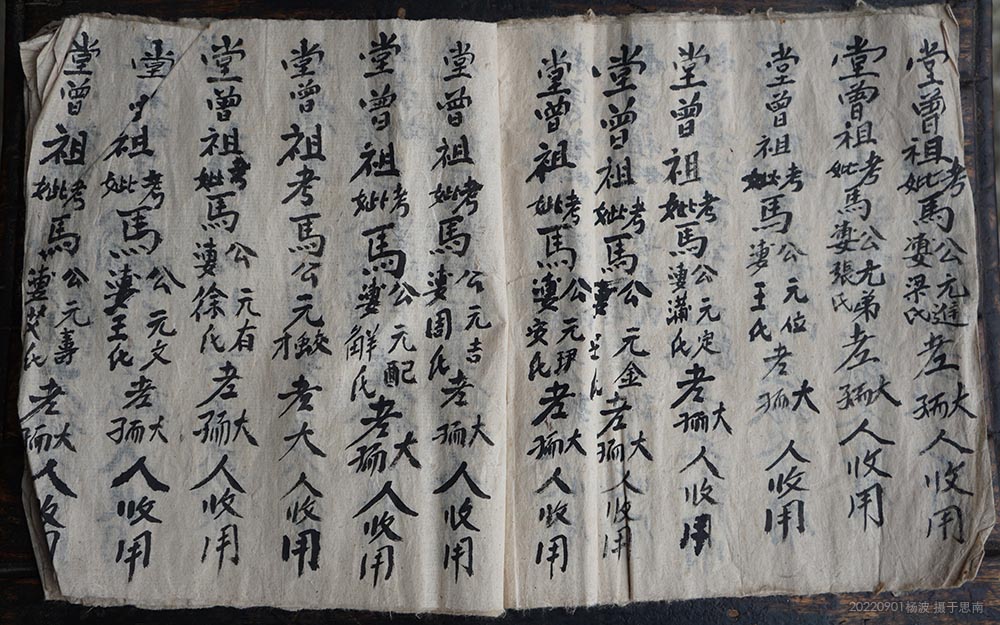 堂曾祖考妣馬公元婆梁氏老大孺人收用
堂曾祖考妣馬公元弟婆張氏老大孺人收用
堂曾祖考妣馬公元位婆王氏老大孺人收用
堂曾祖考妣馬公元定婆蒲氏老大孺人收用
堂曾祖考妣馬公元金氏老大孺人收用
堂曾祖考妣馬公元婆安氏老大孺人收用
堂曾祖考妣馬公元吉婆周氏老大孺人收用
堂曾祖考妣馬公元配婆解氏老大孺人收用
堂曾祖考馬公元老大人收用
堂曾祖考妣馬公元有婆徐氏老大孺人收用
堂曾祖考妣馬公元文婆王氏老大孺人收用
堂曾祖考妣馬公元壽婆氏老大孺人收用
20220901杨波 摄于思南